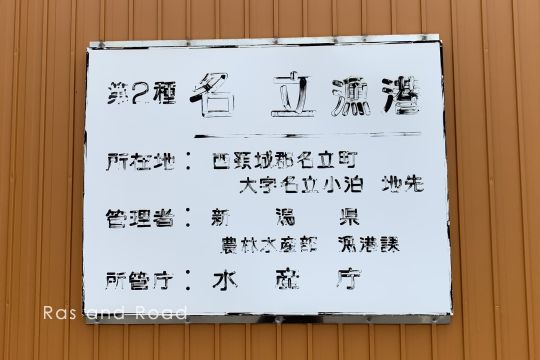 第2種 名立漁港
所在地：西頸城郡名立町
大字名立小泊 地先
管理者：新潟県
農林水産部 漁港課
所管庁：水産庁
Ras and Road